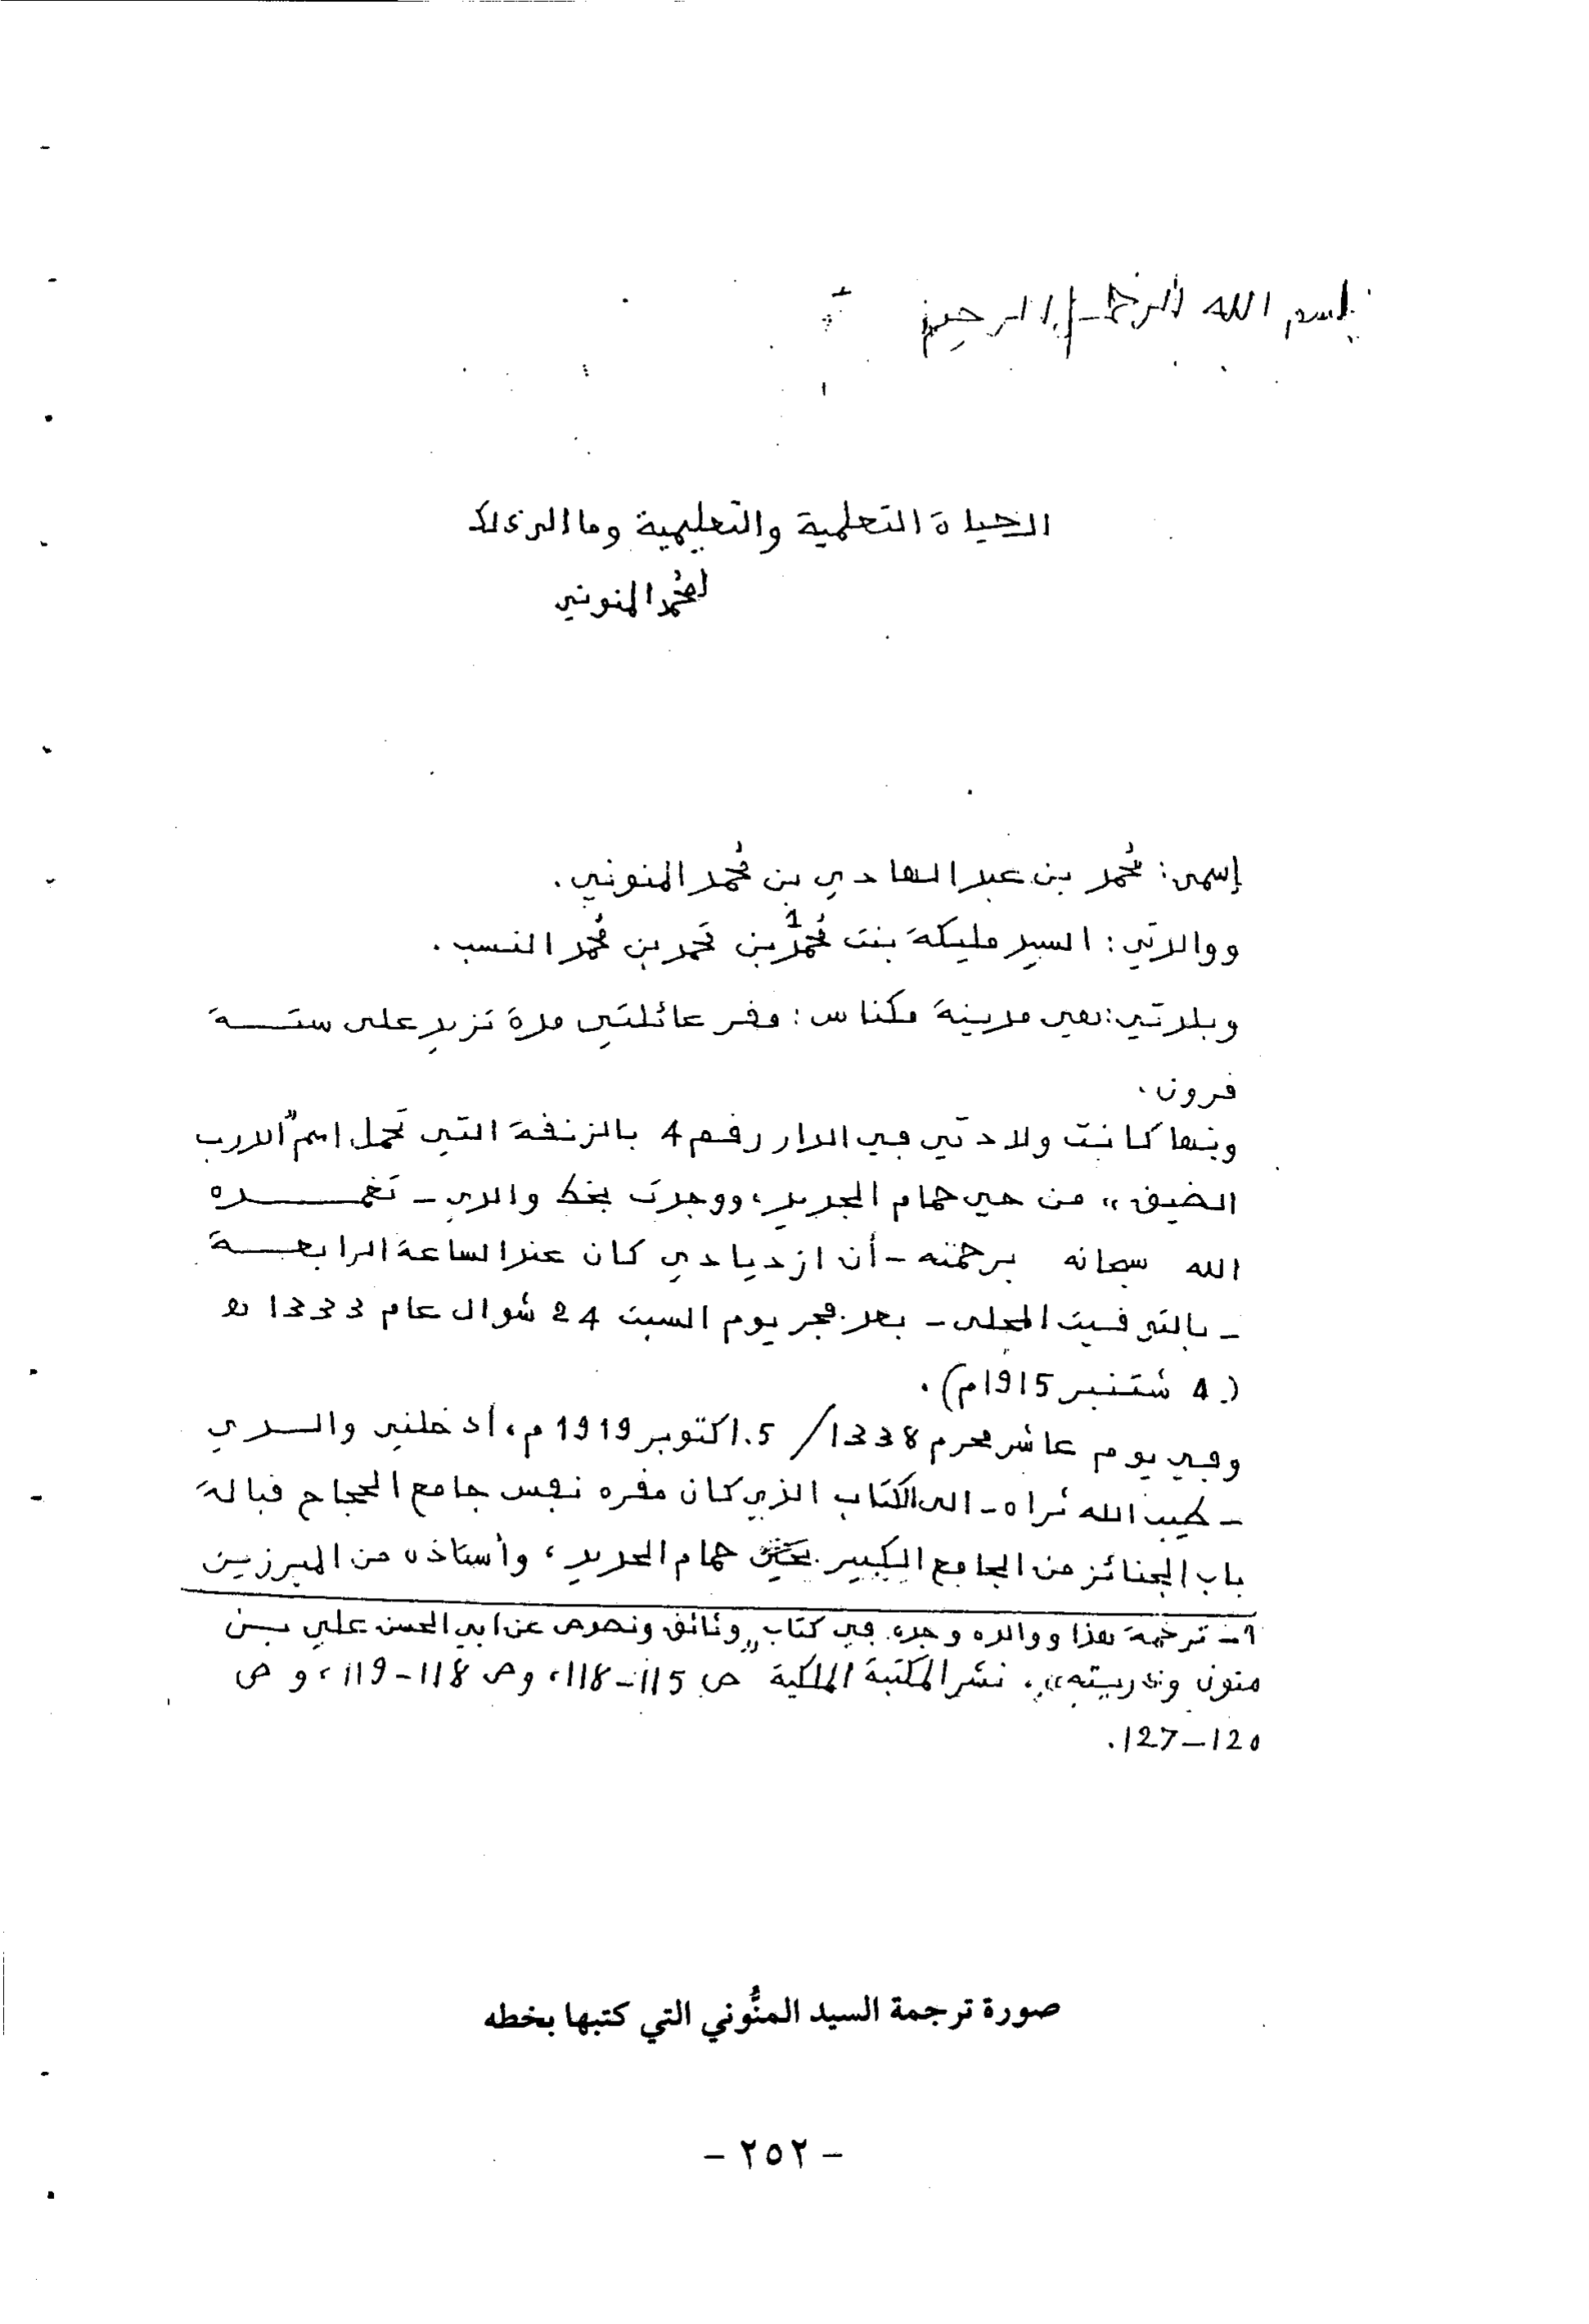 بسم الله الرحمن الرحيم
الحياة التعلمية والتعليمية وما الى ذلك
لمحمد المنوني
إسمى: محمد بن عبد الهادي بن محمد المنوني.
ووالدتي: السيد مليكة بنت محمد1 بن محمد بن محمد النسب.
وبلدتي: هي مدينة مكناس: مقر عائلتي مدة تزيد على ستة
قرون.
وبها كانت ولادتي في الدار رقم 4 بالزنقة التي تحمل اسم "الدرب
الضيق" من حي حمام الجديد، ووجدت بخط والدي - تغمده
الله سبحانه برحمته - أن ازديادي كان عند الساعة الرابعة
- بالتوقيت المحلى - بعد فجر يوم السبت 24 شوال عام 1333 هـ
(4 شتنبر 1915م).
وفي يوم عاشر محرم 1338 / 5 اكتوبر 1919 م، أدخلني والدي
- طيب الله ثراه - الى الكتاب الذي كان مقره نفس جامع الحجاج قبالة
باب الجنائز من الجامع الكبير بحي حمام الجديد، وأستاذه من المبرزين
1 - ترجمة هذا ووالده وجده في كتاب "وثائق ونصوص عن ابي الحسن علي بن
منون وذريته". نشر المكتبة الملكية ص 115-118، وص 118-119، و ص
120-127.
صورة ترجمة السيد المنُّوني التي كتبها بخطه
- ٢٥٢ -